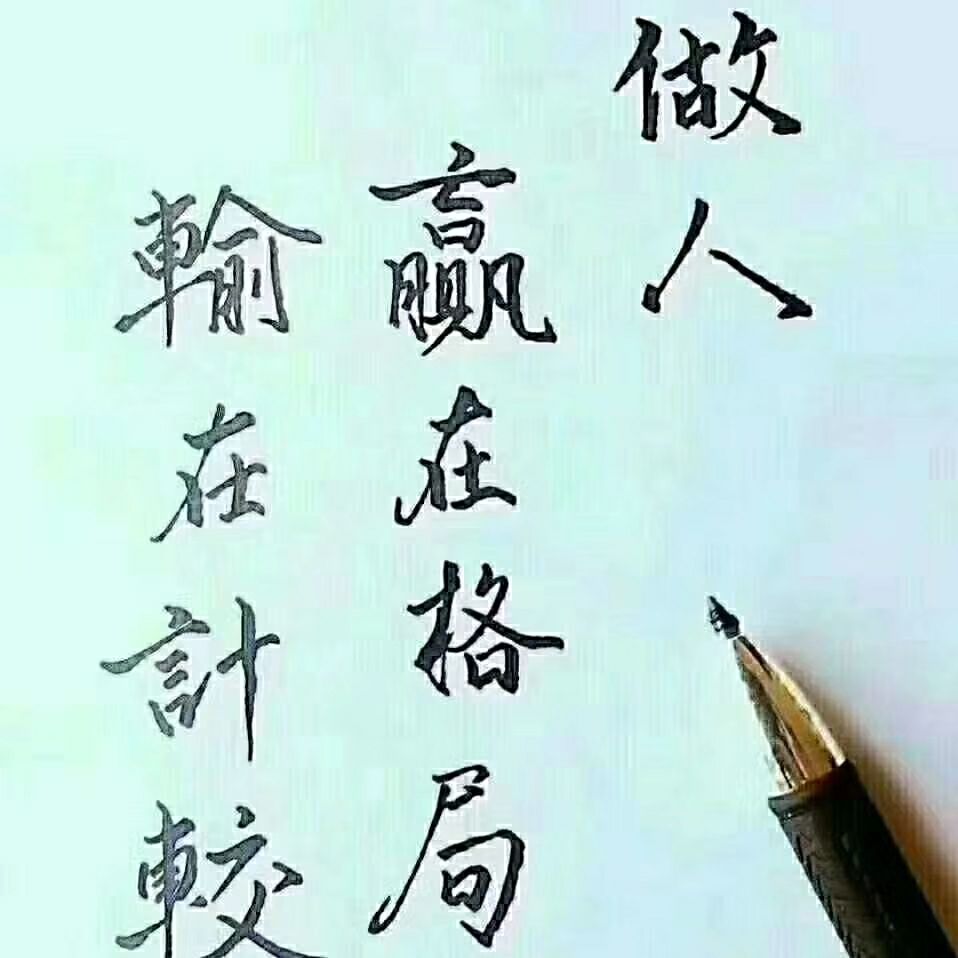 做人
赢在格局
輸在計較